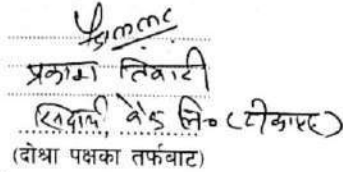 प्रकाश तिवारी
सिद्धार्थ बैंक लि०
(दोश्रा पक्षका तर्फबाट)